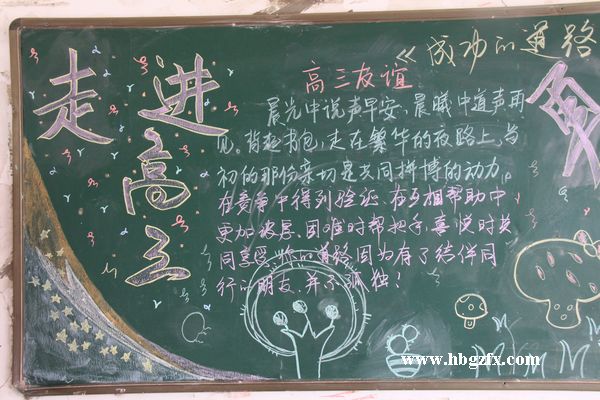 走进高三
《成功的道路
高三友谊
晨光中说声早安、晨曦中道声再
见。背起书包,走在繁华的夜路上,当
初的那份亲切是共同拼搏的动力。
在竞争中得到验证、在互相帮助中
更加 困难时帮把手,喜悦时共
同享受 你的道路因为有了结伴同
行的朋友,并不孤独!
www.hbgzfx.com